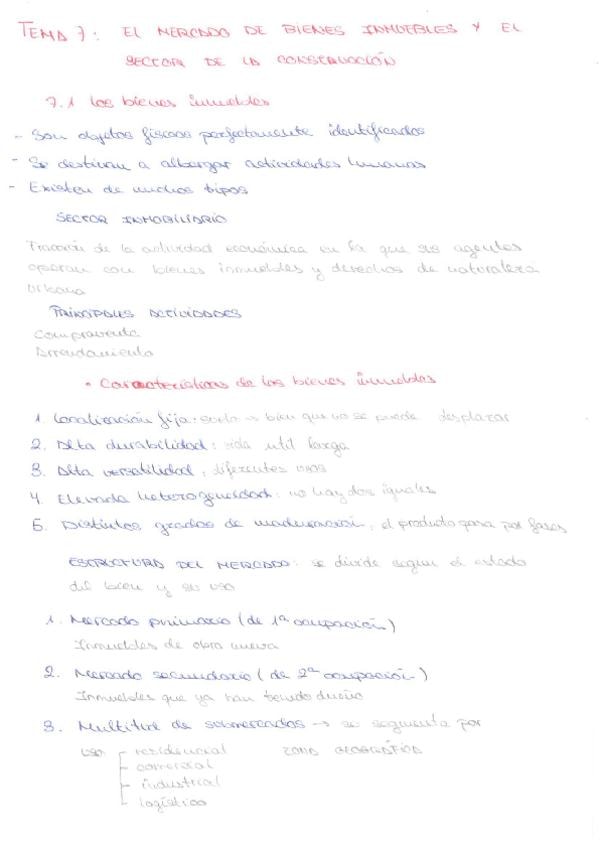 TEMA 7: EL MERCADO DE BIENES INMUEBLES Y EL
SECTOR DE LA CONSTRUCCIÓN
7.1 Los bienes inmuebles
- Son objetos físicos perfectamente identificados
- Se destinan a albergar actividades humanas
- Existen de muchos tipos
SECTOR INMOBILIARIO
Fracción de la actividad económica en la que sus agentes
operan con bienes inmuebles y derechos de naturaleza
urbana
PRINCIPALES ACTIVIDADES
Compraventa
Arrendamiento
• Características de los bienes inmuebles
1. Localización fija: suelo → bien que no se puede desplazar
2. Alta durabilidad: vida util larga
3. Alta versatilidad, diferentes usos
4. Elevada heterogeneidad: no hay dos iguales
5. Distintos grados de maduración, el producto pasa por fases
ESTRUCTURA DEL MERCADO: se divide segun el estado
del bien y su uso
1. Mercado primario (de 1ª ocupación)
Inmuebles de obra nueva
2. Mercado secundario (de 2ª ocupación)
Inmuebles que ya han tenido dueño
3. Multitud de submercados → se segmenta por
uso residencial ZONA GEOGRÁFICA
comercial
industrial
logístico